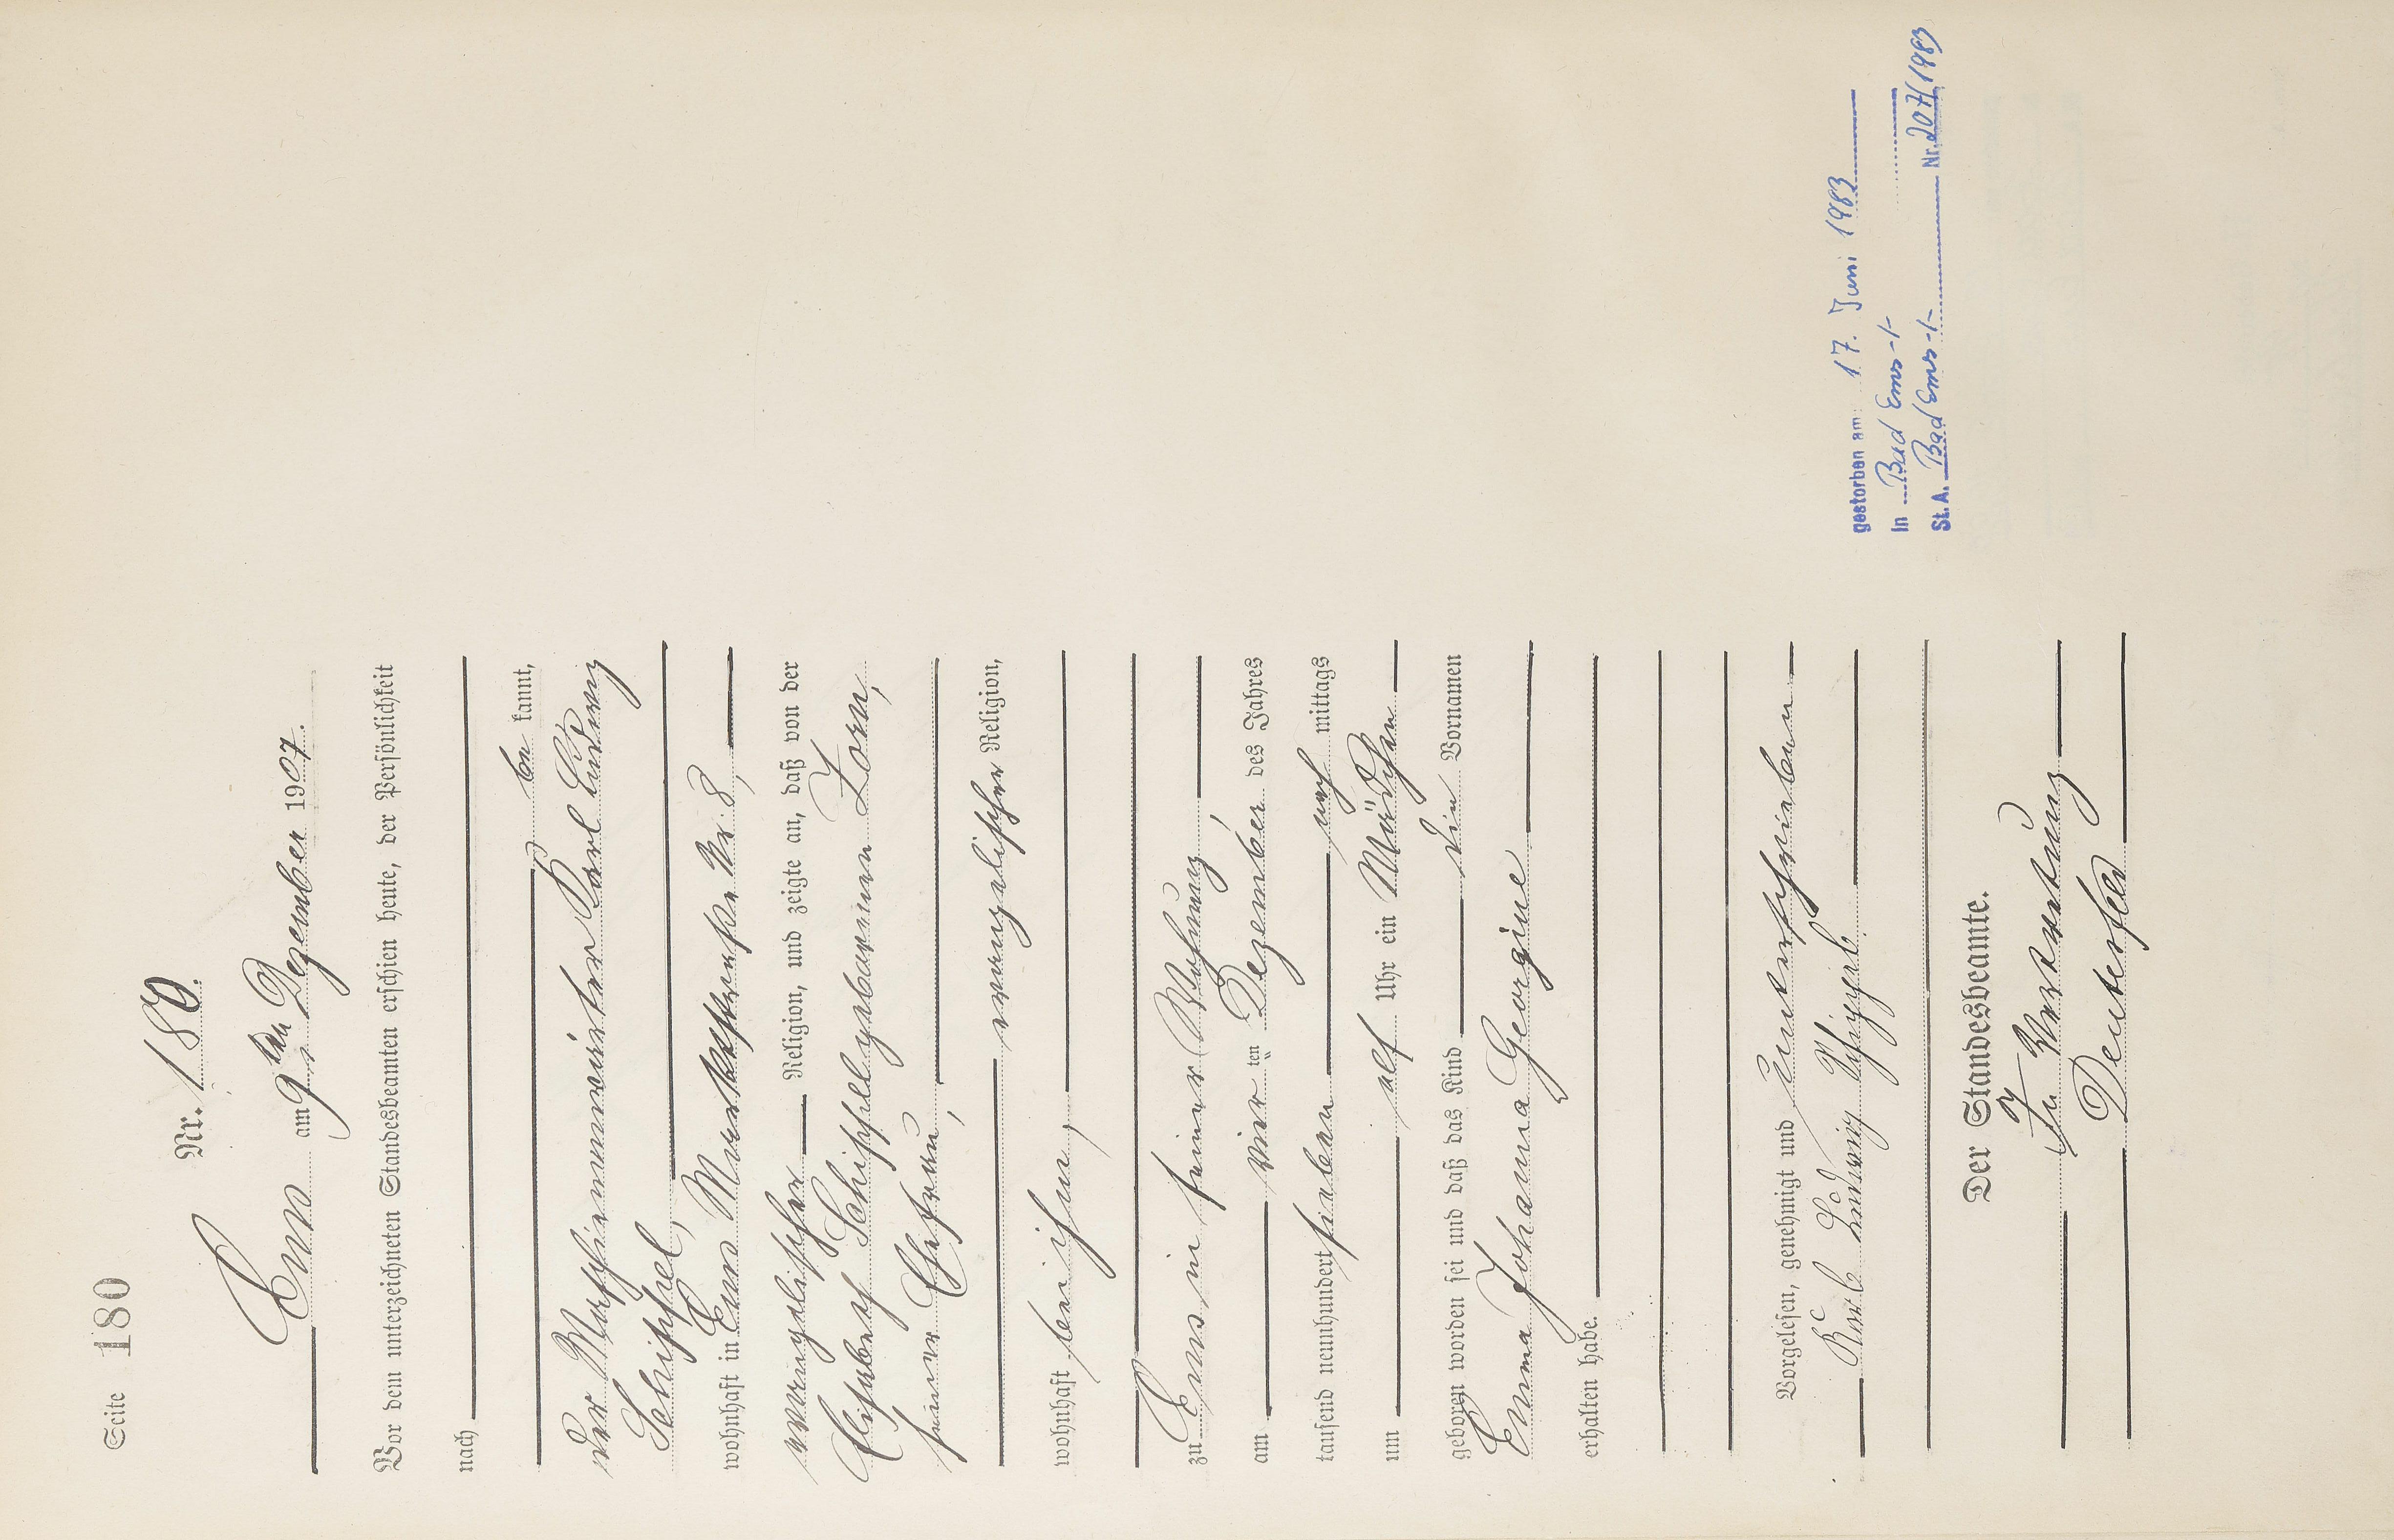 Seite 180
Nr. 180.
Ems am 9ten Dezember 1907.
Vor dem unterzeichneten Standesbeamten erschien heute, der Persönlichkeit
nach
be kannt,
der Maschinenwärter Karl Ludwig
Schippel,
wohnhaft in Ems Marktstraße Nr. 8,
evangelischer Religion, und zeigte an, daß von der
Elisabeth Schippel geborenen Zorn,
seiner Ehefrau,
evangelischer Religion,
wohnhaft bei ihm,
zu Ems in seiner Wohnung,
am vier ten Dezember des Jahres
tausend neunhundert sieben nach mittags
um elf Uhr ein Mädchen
geboren worden sei und daß das Kind die Vornamen
Emma Johanna Georgine
erhalten habe.
Vorgelesen, genehmigt und unterschrieben
Karl Ludwig
Der Standesbeamte.
In Vertretung
Deutesfeld
gestorben am: 17. Juni 1983
in Bad Ems -/-
St. A. Bad Ems -/- Nr. 207/1983